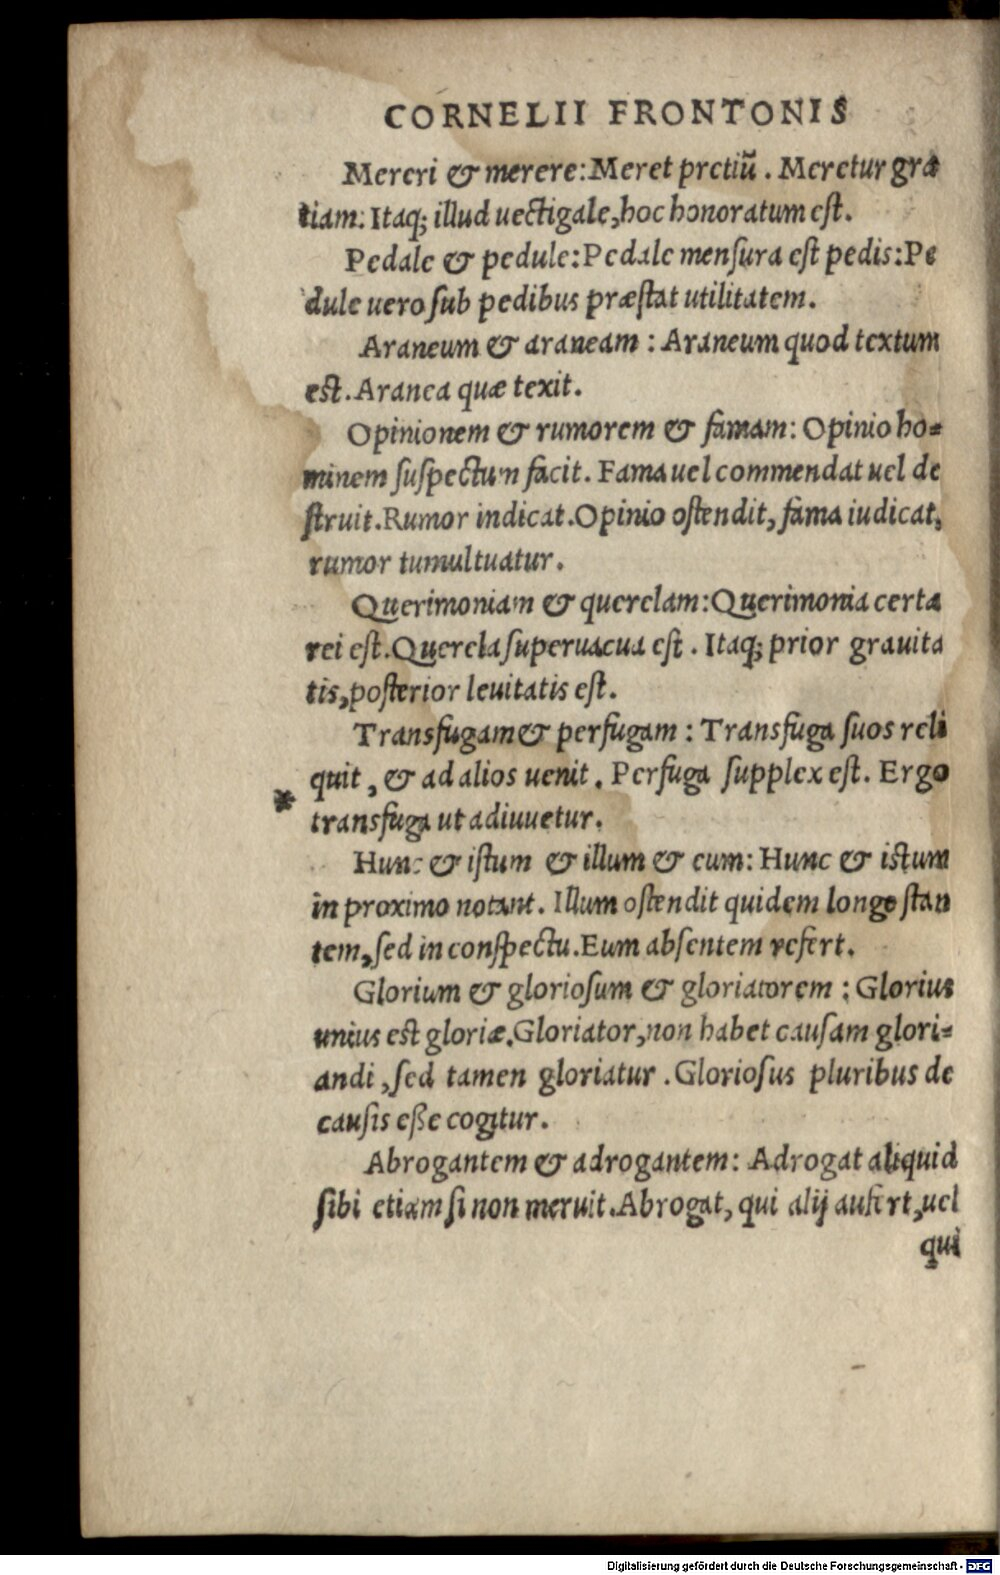 CORNELII FRONTONIS
Mereri & merere: Meret pretiũ. Meretur gra
tiam: Itaq; illud uectigale, hoc honoratum est.
Pedale & pedule: Pedale mensura est pedis: Pe
dule uero sub pedibus præstat utilitatem.
Araneum & araneam: Araneum quod textum
est. Aranea quæ texit.
Opinionem & rumorem & famam: Opinio ho=
minem suspectum facit. Fama uel commendat uel de
struit. Rumor indicat. Opinio ostendit, fama iudicat,
rumor tumultuatur.
Querimoniam & querelam: Querimonia certa
rei est. Querela superuacua est. Itaq; prior grauita
tis, posterior leuitatis est.
Transfugam & perfugam: Transfuga suos reli
quit, & ad alios uenit. Perfuga supplex est. Ergo
* transfuga ut adiuuetur.
Hunc & istum & illum & eum: Hunc & istum
in proximo notant. Illum ostendit quidem longe stan
tem, sed in conspectu. Eum absentem refert.
Glorium & gloriosum & gloriatorem: Glorius
unius est gloriæ. Gloriator, non habet causam glori=
andi, sed tamen gloriatur. Gloriosus pluribus de
causis eße cogitur.
Abrogantem & adrogantem: Adrogat aliquid
sibi etiam si non meruit. Abrogat, qui alij aufert, uel
qui
Digitalisierung gefördert durch die Deutsche Forschungsgemeinschaft - DFG